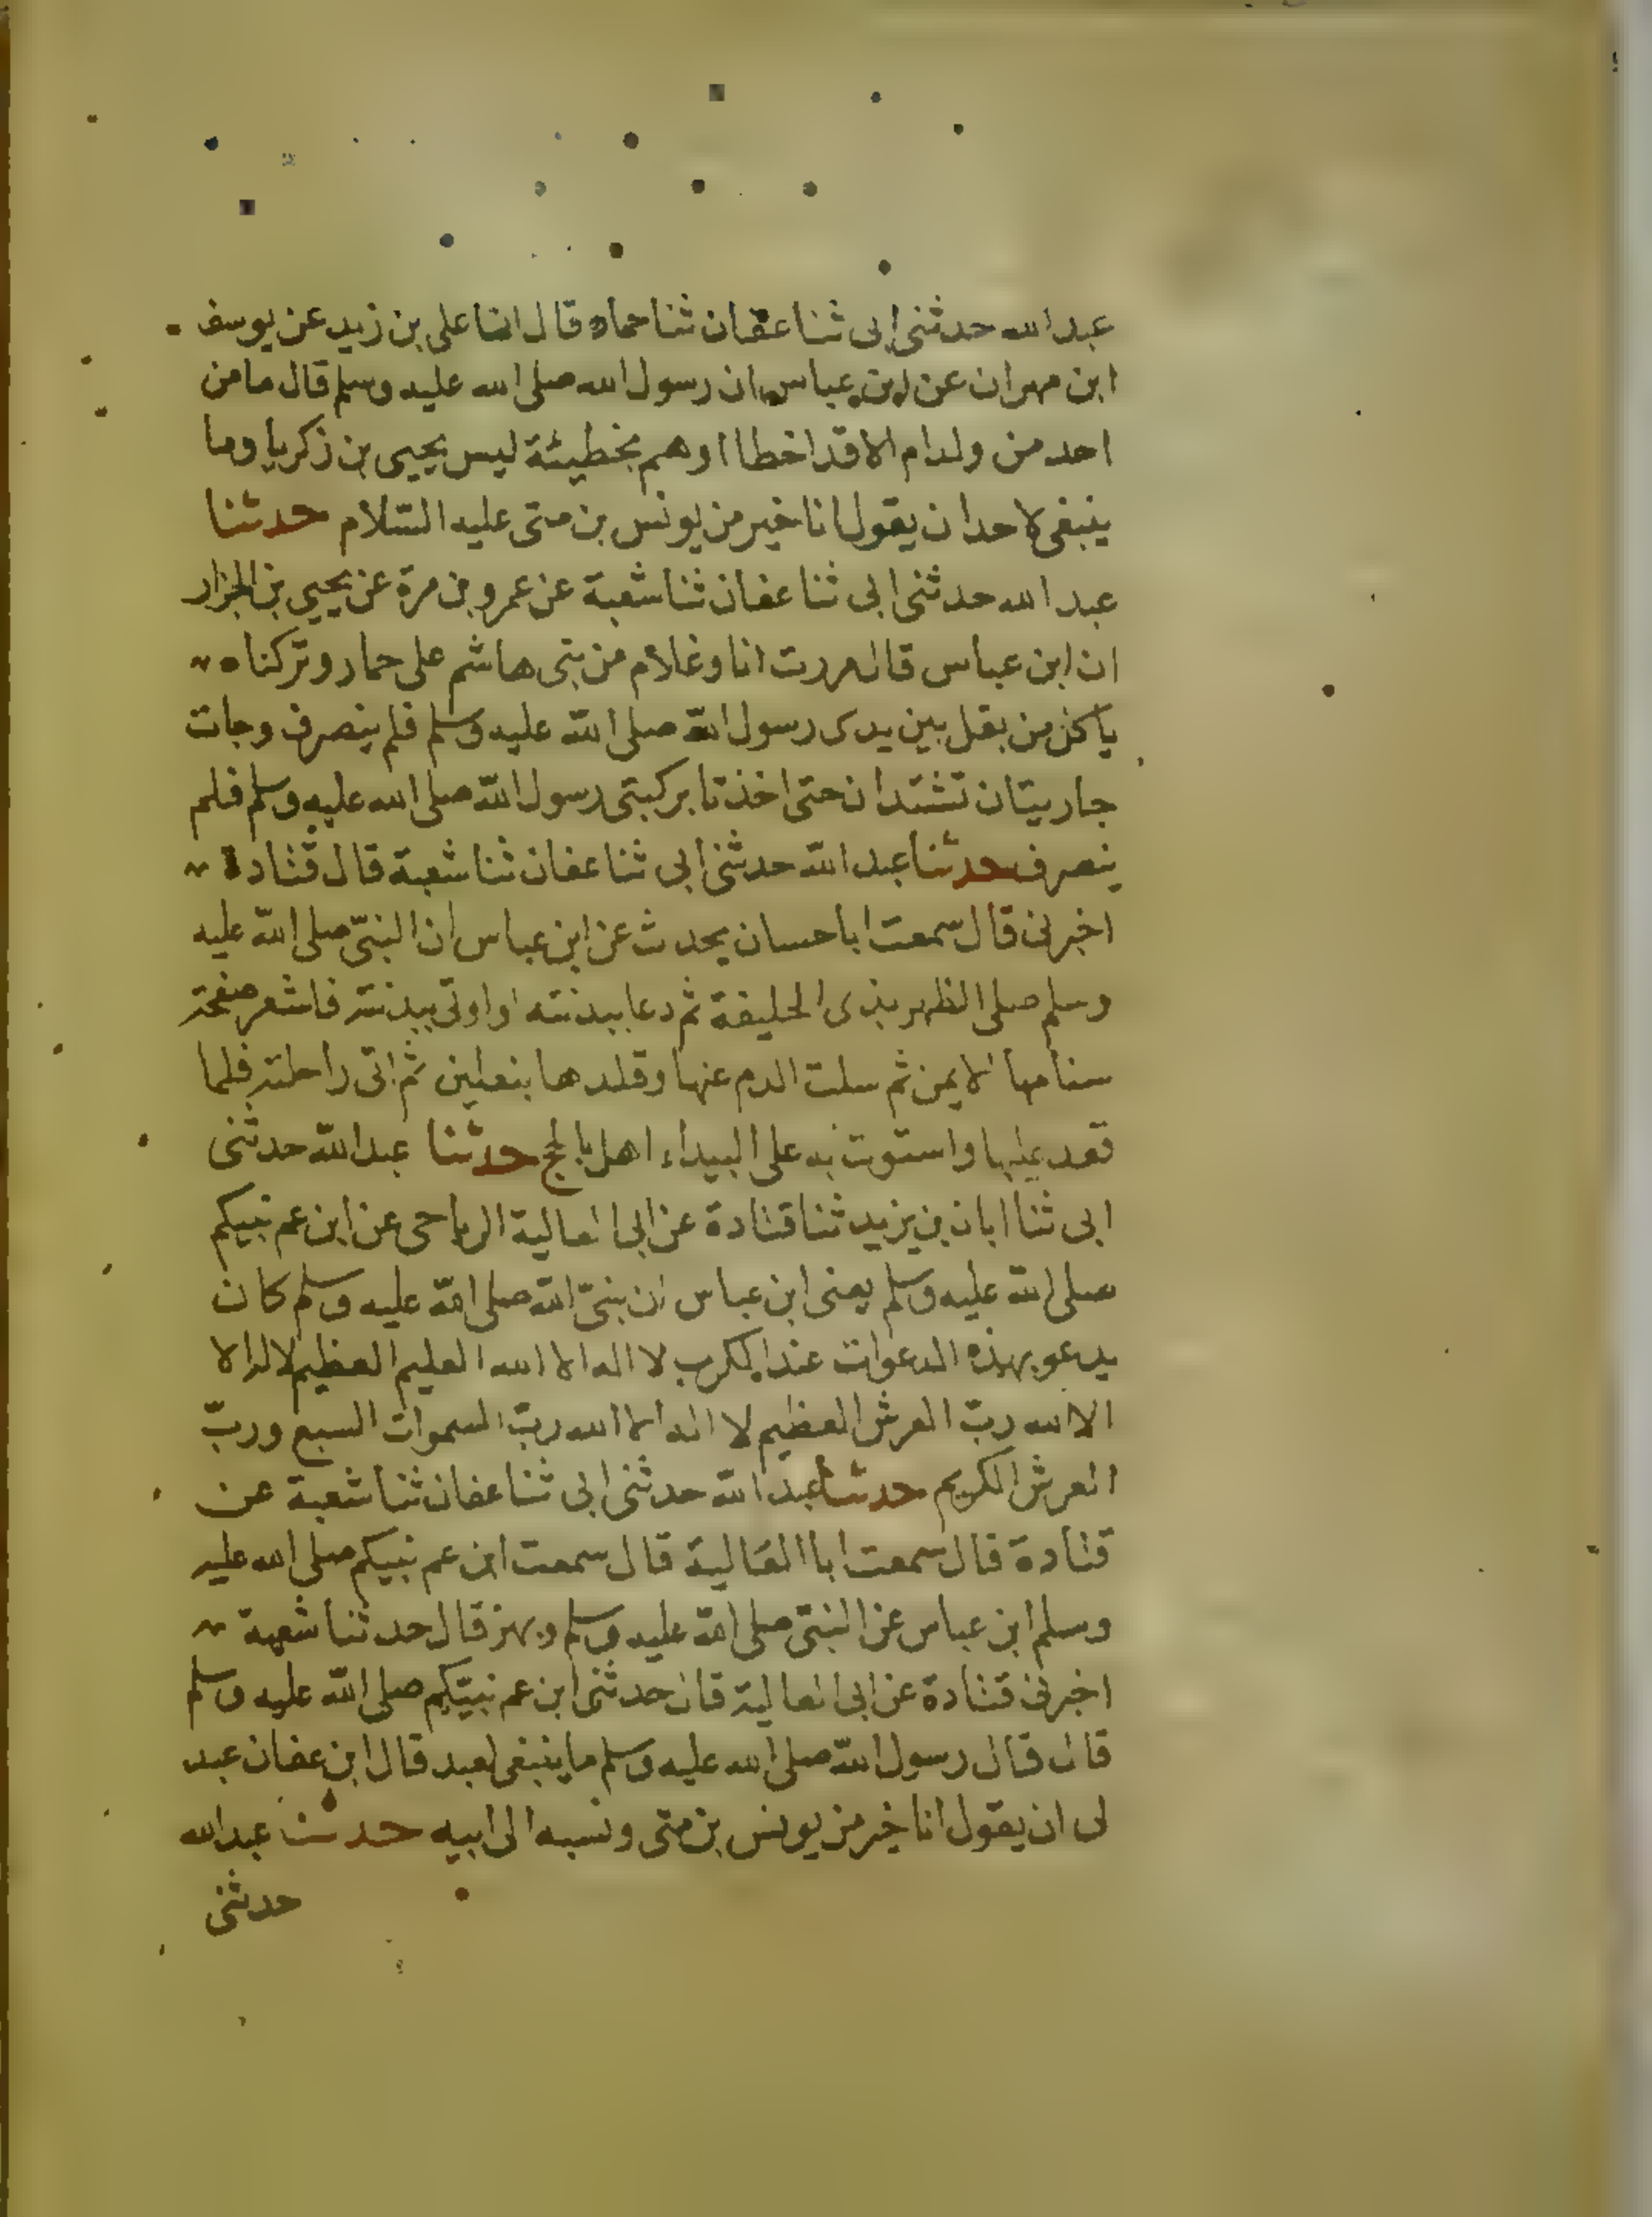 عبد الله حدثنى ابى ثنا عفان ثنا حماد قال انا على بن زيد عن يوسف
ابن مهران عن ابن عباس ان رسول الله صلى الله عليه وسلم قال ما من
احد من ولد ادم الا قد اخطا او هم بخطيئة ليس يحيى بن زكريا وما
ينبغى لاحد ان يقول انا خير من يونس بن متى عليه السلام حدثنا
عبد الله حدثنى ابى ثنا عفان ثنا شعبة عن عمرو بن مرة عن يحيى بن الجزار
ان ابن عباس قال مررت انا وغلام من بنى هاشم على حمار وتركناه
ياكل من بقل بين يدى رسول الله صلى الله عليه وسلم فلم ينصرف وجات
جاريتان تشتدان حتى اخذتا بركبتى رسول الله صلى الله عليه وسلم فلم
ينصرف حدثنا عبد الله حدثنى ابى ثنا عفان ثنا شعبة قال قتادة
اخبرنى قال سمعت ابا حسان يحدث عن ابن عباس ان النبى صلى الله عليه
وسلم صلى الظهر بذى الحليفة ثم دعا ببدنته او اوتى ببدنته فاشعر صفحة
سنامها الايمن ثم سلت الدم عنها وقلدها بنعلين ثم اتى راحلته فلما
قعد عليها واستوت به على البيداء اهل بالحج حدثنا عبد الله حدثنى
ابى ثنا ابان بن يزيد ثنا قتادة عن ابى العالية الرياحى عن ابن عم نبيكم
صلى الله عليه وسلم يعنى ابن عباس ان نبىّ الله صلى الله عليه وسلم كان
يدعو بهذه الدعوات عند الكرب لا اله الا الله العليم العظيم لا اله الا
الا الله ربّ العرش العظيم لا اله الا الله ربّ السموات السبع وربّ
العرش الكريم حدثنا عبد الله حدثنى ابى ثنا عفان ثنا شعبة عن
قتادة قال سمعت ابا العالية قال سمعت ابن عم نبيكم صلى الله عليه
وسلم ابن عباس عن النبىّ صلى الله عليه وسلم وبهز قال حدثنا شعبة
اخبرنى قتادة عن ابى العالية قال حدثنى ابن عم نبيّكم صلى الله عليه وسلم
قال قال رسول الله صلى الله عليه وسلم ما ينبغى لعبد قال ابن عفان عبد
لى ان يقول انا خير من يونس بن متى ونسبه الى ابيه حدثنا عبد الله
حدثنى